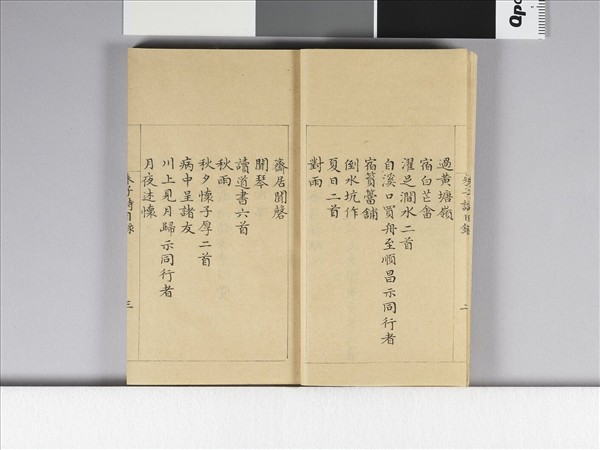 過黃塘嶺
宿白芒畲
濯足澗水二首
自溪口買舟至順昌示同行者
宿篔簹鋪
倒水坑作
夏日二首
對雨
二
齋居聞磬
聞琴
讀道書六首
秋雨
秋夕懷子厚二首
病中呈諸友
川上見月歸示同行者
月夜述懷
朱子詩目錄
三